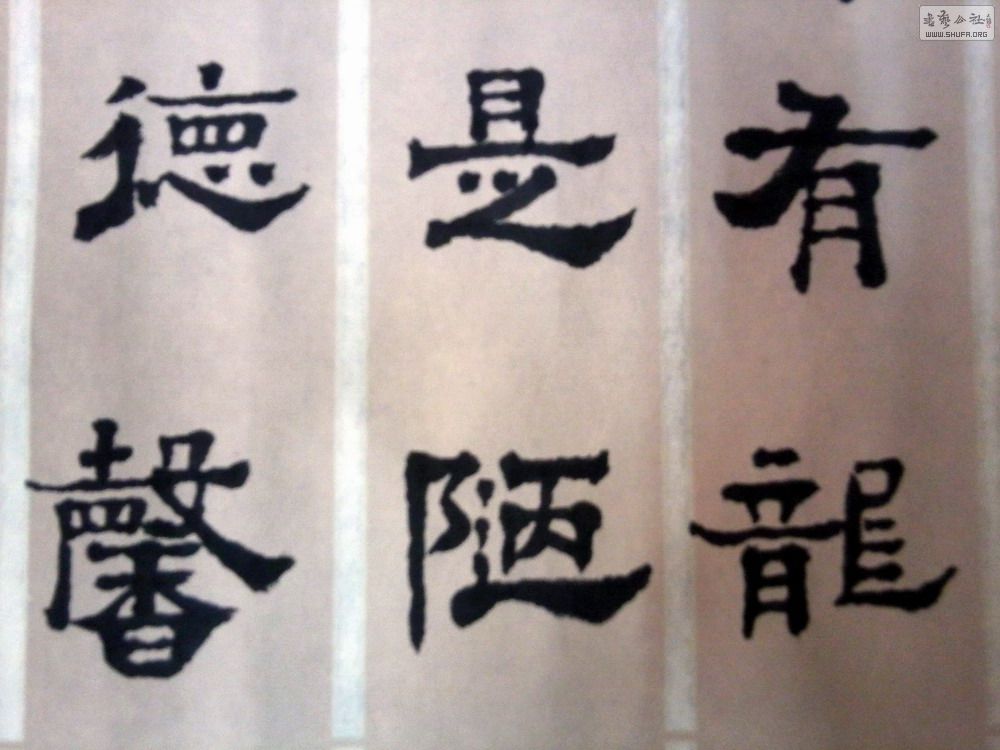 有龍
是陋
德馨
書藝公社
WWW.SHUFA.ORG